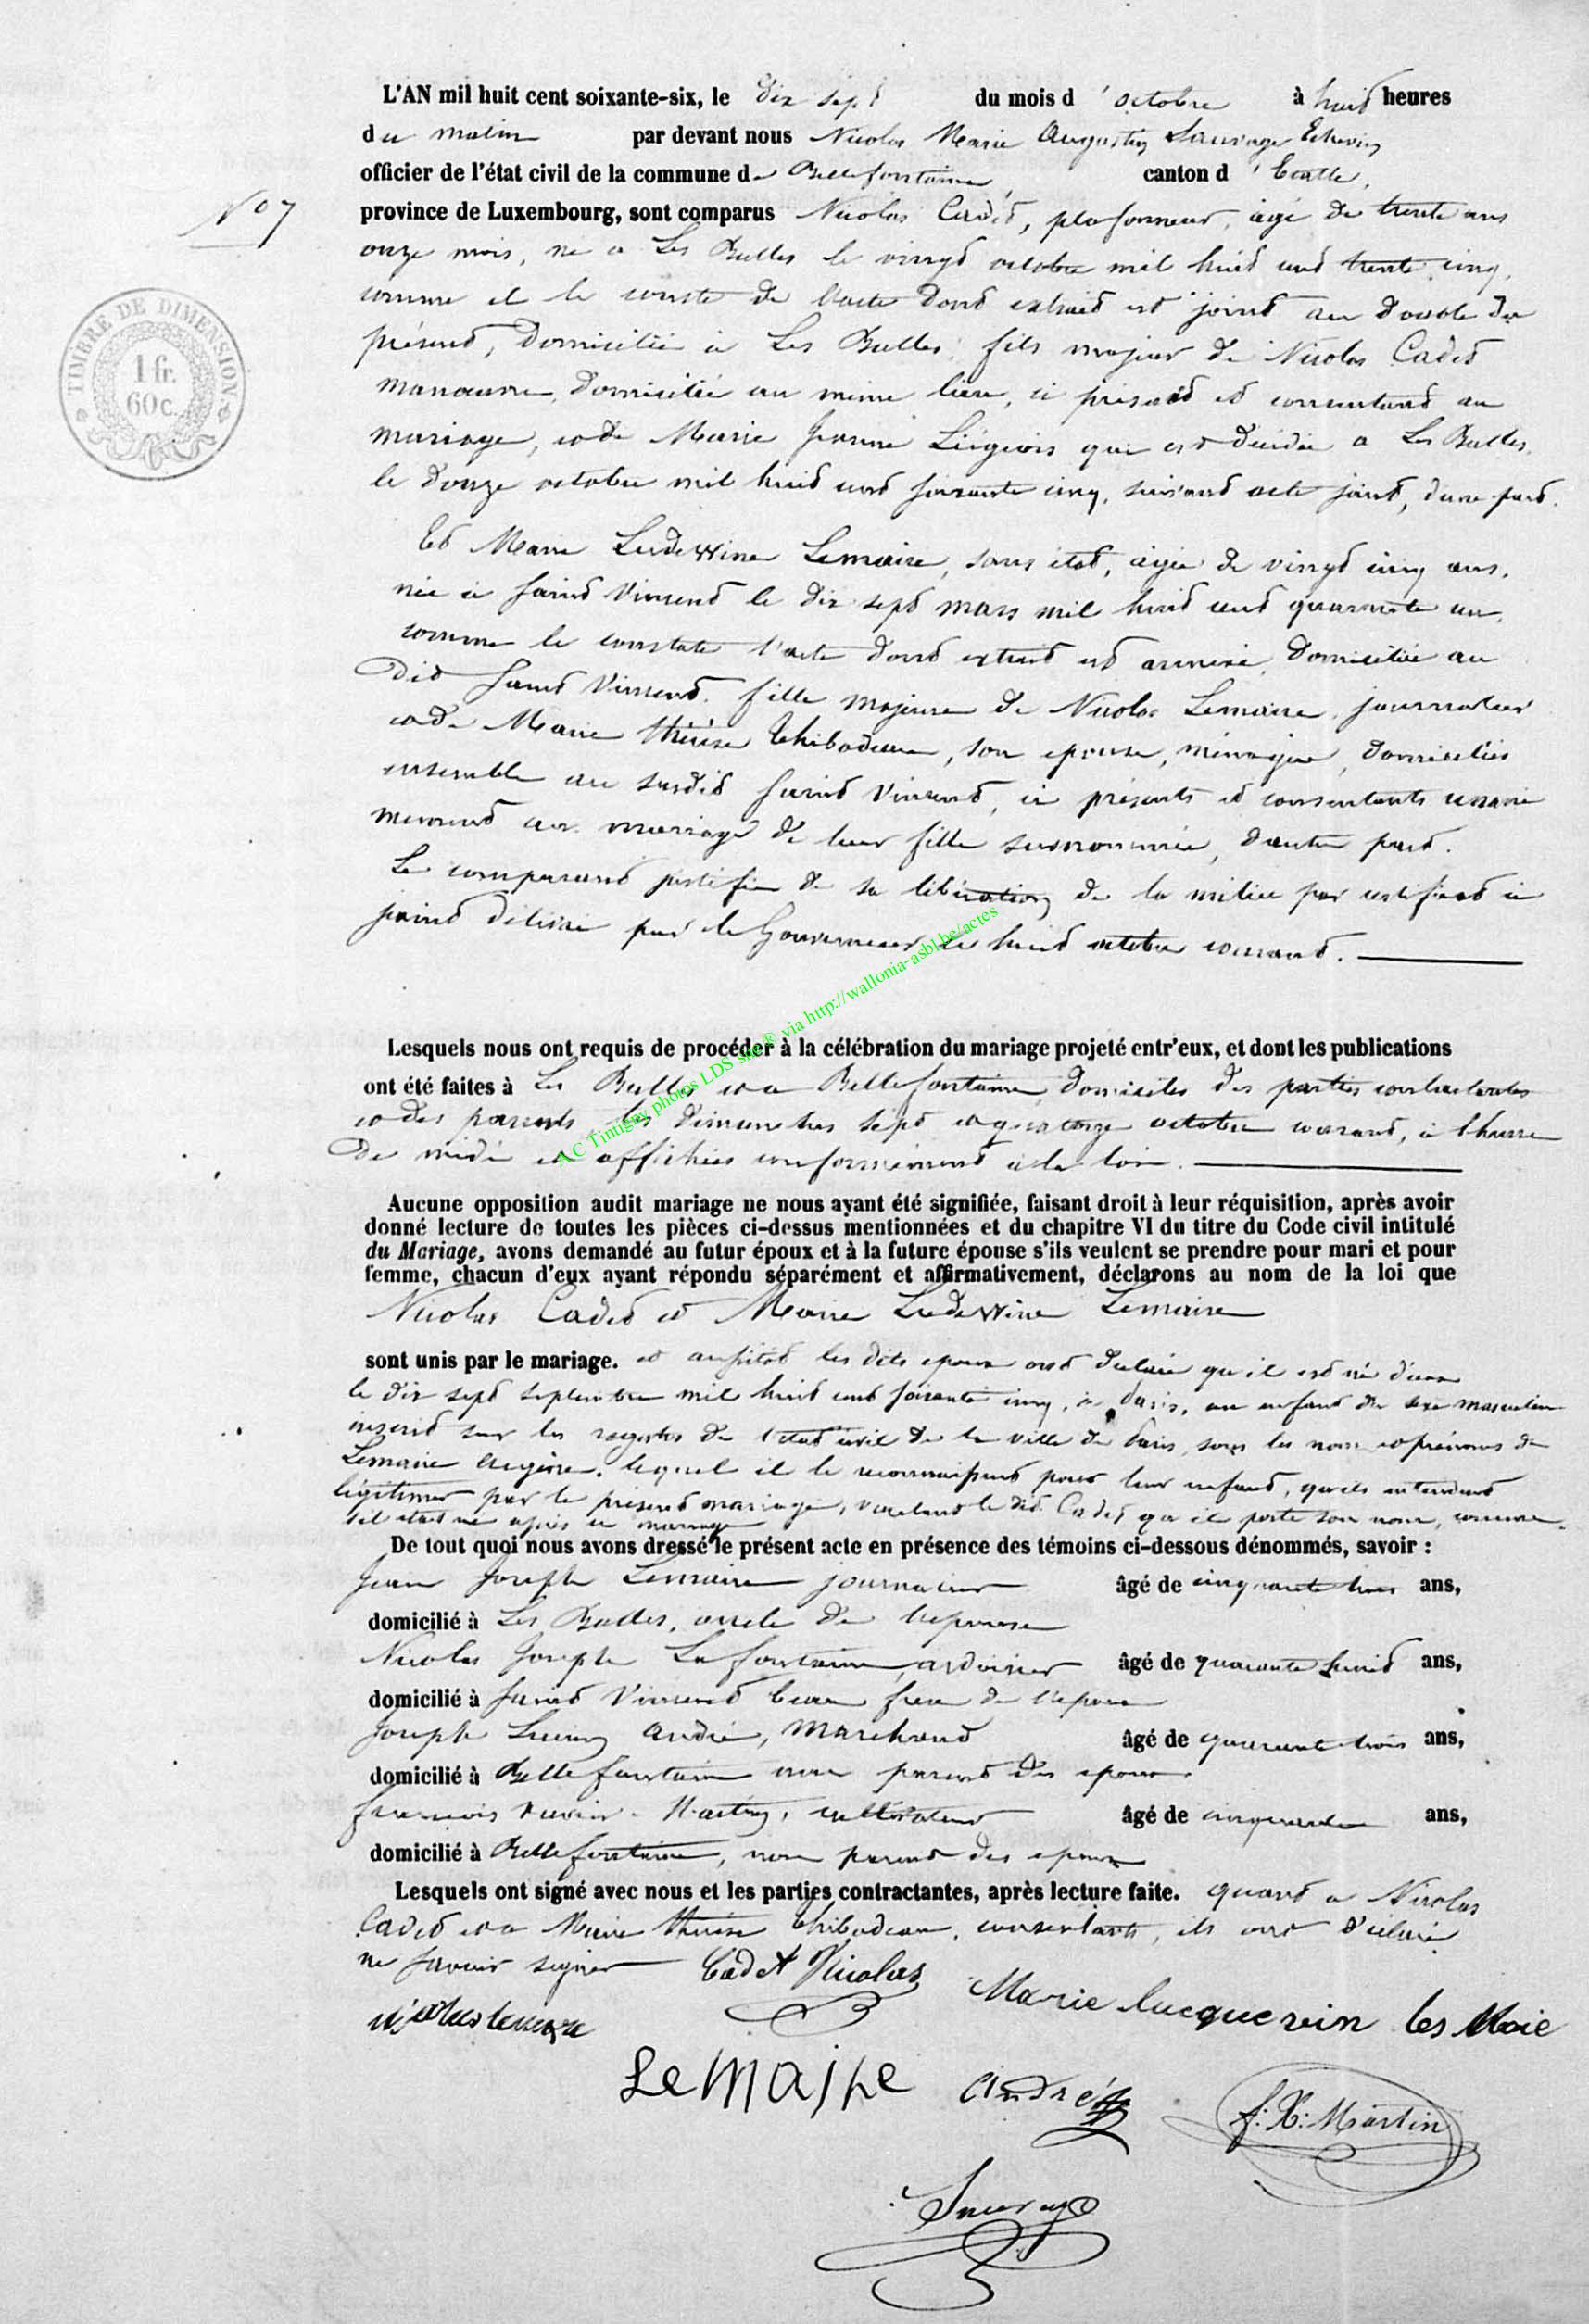 L'AN mil huit cent soixante-six, le dix sept du mois d'octobre à huit heures
du matin par devant nous Nicolas Marie Augustin Sauvage Echevin
officier de l'état civil de la commune de Bellefontaine, canton d'Etalle,
N° 7
province de Luxembourg, sont comparus Nicolas Cadet, plafonneur, âgé de trente ans
onze mois, né à Les Bulles le vingt octobre mil huit cent trente cinq,
comme il le conste de l'acte dont extrait est joint au double du
présent, domicilié à Les Bulles, fils majeur de Nicolas Cadet
manœuvre, domicilié au même lieu, ci présent et consentant au
mariage, et de Marie Jeanne Liégeois qui est décédée à Les Bulles,
le douze octobre mil huit cent soixante cinq, suivant acte joint, d'une part.
TIMBRE DE DIMENSION
1 fr.
60 c.
Et Marie Ludewine Lemaire, sans état, âgée de vingt cinq ans,
née à Saint Vincent le dix sept mars mil huit cent quarante un,
comme le constate l'acte dont extrait est annexé, domiciliée au
dit Saint Vincent, fille majeure de Nicolas Lemaire, journalier
et de Marie thérèse thibodeau, son épouse, ménagère, domiciliés
ensemble au susdit Saint Vincent, ci présents et consentants unani
mement au mariage de leur fille surnommée, d'autre part.
Le comparant justifie de sa libération de la milice par certificat ci
joint délivré par le Gouverneur le huit octobre courant.
AC Tintigny photos LDS site® via http://wallonia-asbl.be/actes
Lesquels nous ont requis de procéder à la célébration du mariage projeté entr'eux, et dont les publications
ont été faites à Les Bulles et à Bellefontaine, domiciles des parties contractantes
et des parents les dimanches sept et quatorze octobre courant, à l'heure
de midi et affichées conformément à la loi.
Aucune opposition audit mariage ne nous ayant été signifiée, faisant droit à leur réquisition, après avoir
donné lecture de toutes les pièces ci-dessus mentionnées et du chapitre VI du titre du Code civil intitulé
du Mariage, avons demandé au futur époux et à la future épouse s'ils veulent se prendre pour mari et pour
femme, chacun d'eux ayant répondu séparément et affirmativement, déclarons au nom de la loi que
Nicolas Cadet et Marie Ludewine Lemaire
sont unis par le mariage. et aussitôt les dits époux ont déclaré qu'il est né d'eux
le dix sept septembre mil huit cent soixante cinq, à Paris, un enfant du sexe masculin
inscrit sur les registres de l'état civil de la ville de Paris, sous les noms et prénoms de
Lemaire Eugène, lequel ils le reconnaissent pour leur enfant, qu'ils entendent
légitimer par le présent mariage, voulant le dit Cadet qu'il porte son nom, comme
s'il était né après ce mariage
De tout quoi nous avons dressé le présent acte en présence des témoins ci-dessous dénommés, savoir :
Jean Joseph Lemaire journalier âgé de cinquante ans,
domicilié à Les Bulles, oncle de l'épouse
Nicolas Joseph Lafontaine, ardoisier âgé de quarante huit ans,
domicilié à Saint Vincent beau frère de l'époux
Joseph Lucien André, marchand âgé de quarante trois ans,
domicilié à Bellefontaine non parent des époux
François Xavier Martin, cultivateur âgé de cinquante ans,
domicilié à Bellefontaine, non parent des époux
Lesquels ont signé avec nous et les parties contractantes, après lecture faite. quant à Nicolas
Cadet et à Marie thérèse thibodeau, consentants, ils ont déclaré
ne savoir signer Cadet Nicolas
Marie lucquevin les Maie
nicolas lemaire
LeMaire andré f: X: Martin
Sauvage